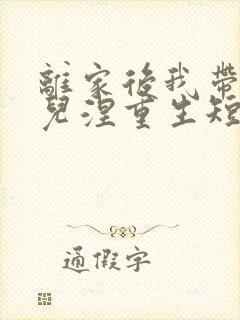 離家後我帶
兒涅重生短
通假字